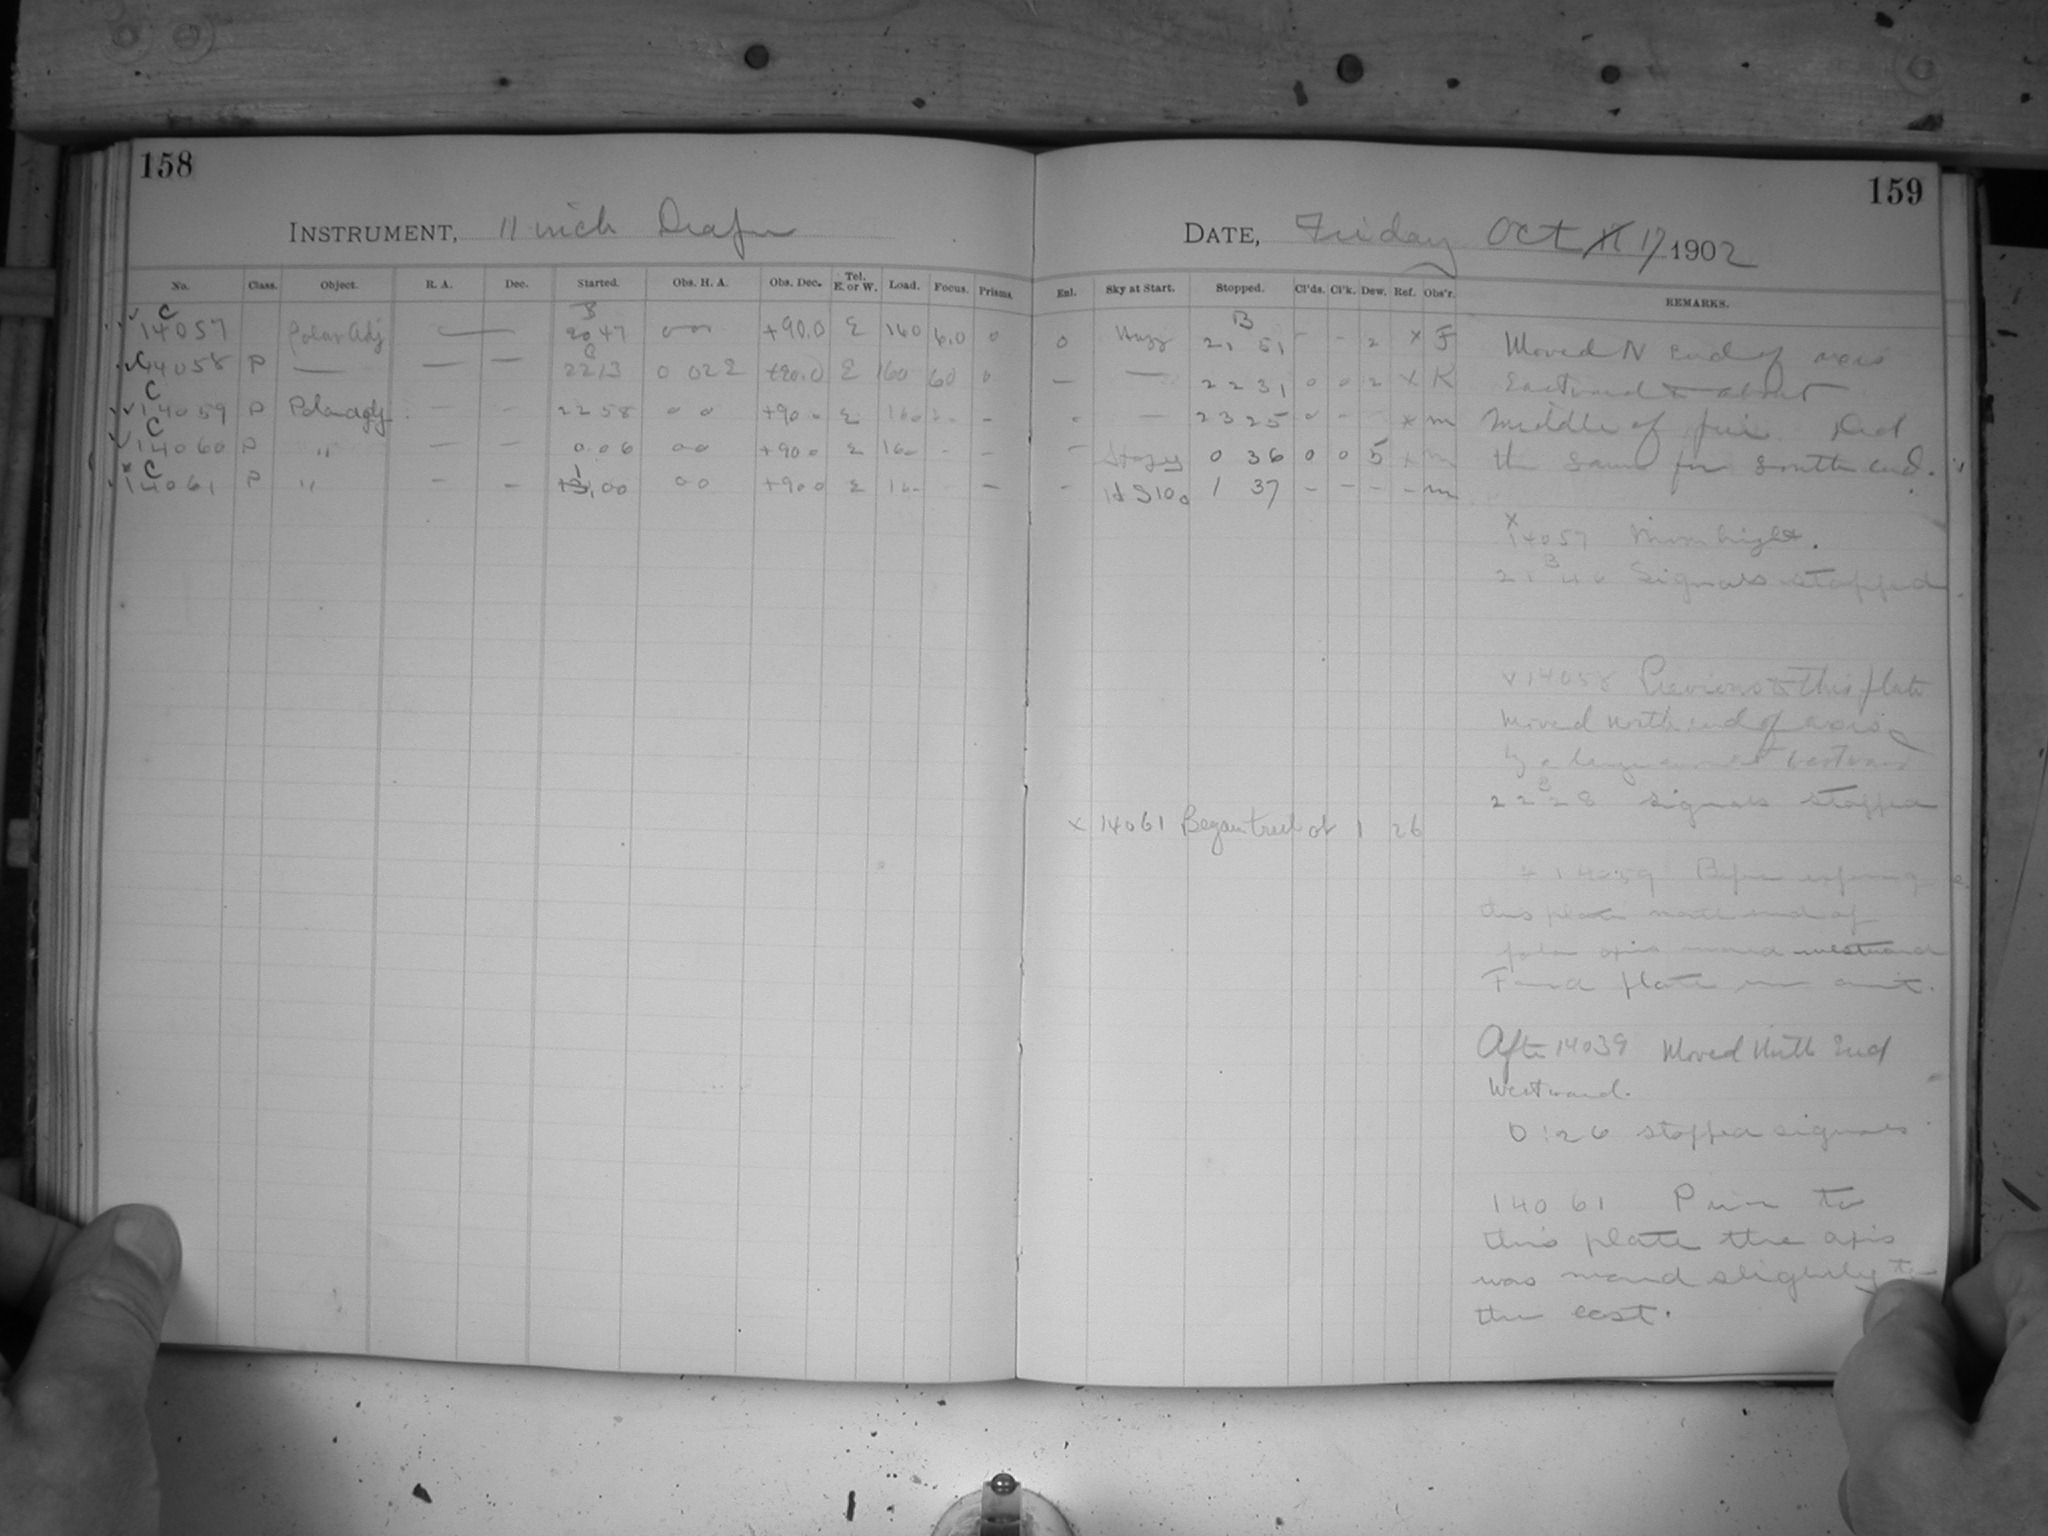 158
159
INSTRUMENT, 11 inch Draper
DATE, Friday Oct 17 1902
No. Class. Object. R. A. Dec. Started. Obs. H. A. Obs. Dec. Tel. E. or W. Load. Focus. Prisms.
Enl. Sky at Start. Stopped. Cl'ds. Cl'k. Dew. Ref. Obs'r. REMARKS.
C
14057 Polar Adj — 47 0 0 +90.0 E 160 6.0 0
0 Hazy B 21 51 - - 2 x F Moved N end of axis
C 14058 P — — — 22 13 0 02 E +90.0 E 160 60 0
— — 22 31 0 0 2 x K Eastward about
C
14059 P Polar adj. - - 22 58 0 0 +90 0 E 160 -
- — 23 25 0 - x m Middle of pier Did
C
14060 P " — — 0.06 0 0 +90 0 E 160 - -
- 0 36 0 0 5 x m the same for south end.
C
14061 P " - - 1 00 0 0 +90 0 E 16- —
- 1 37 - - - - m
x
14057 Moon bright.
21 B 40 Signals stopped
x 14058 Previous to this plate
moved north end of axis
by a large amount westward
22 B 28 Signals stopped
x 14061 Began trail at 1 26
x 14059 Before exposing
this plate north end of
polar axis moved westward
Found plate
After 14039 Moved North End
Westward.
0:26 stopped signals
14061 Prior to
this plate the axis
was moved slightly to
the east.